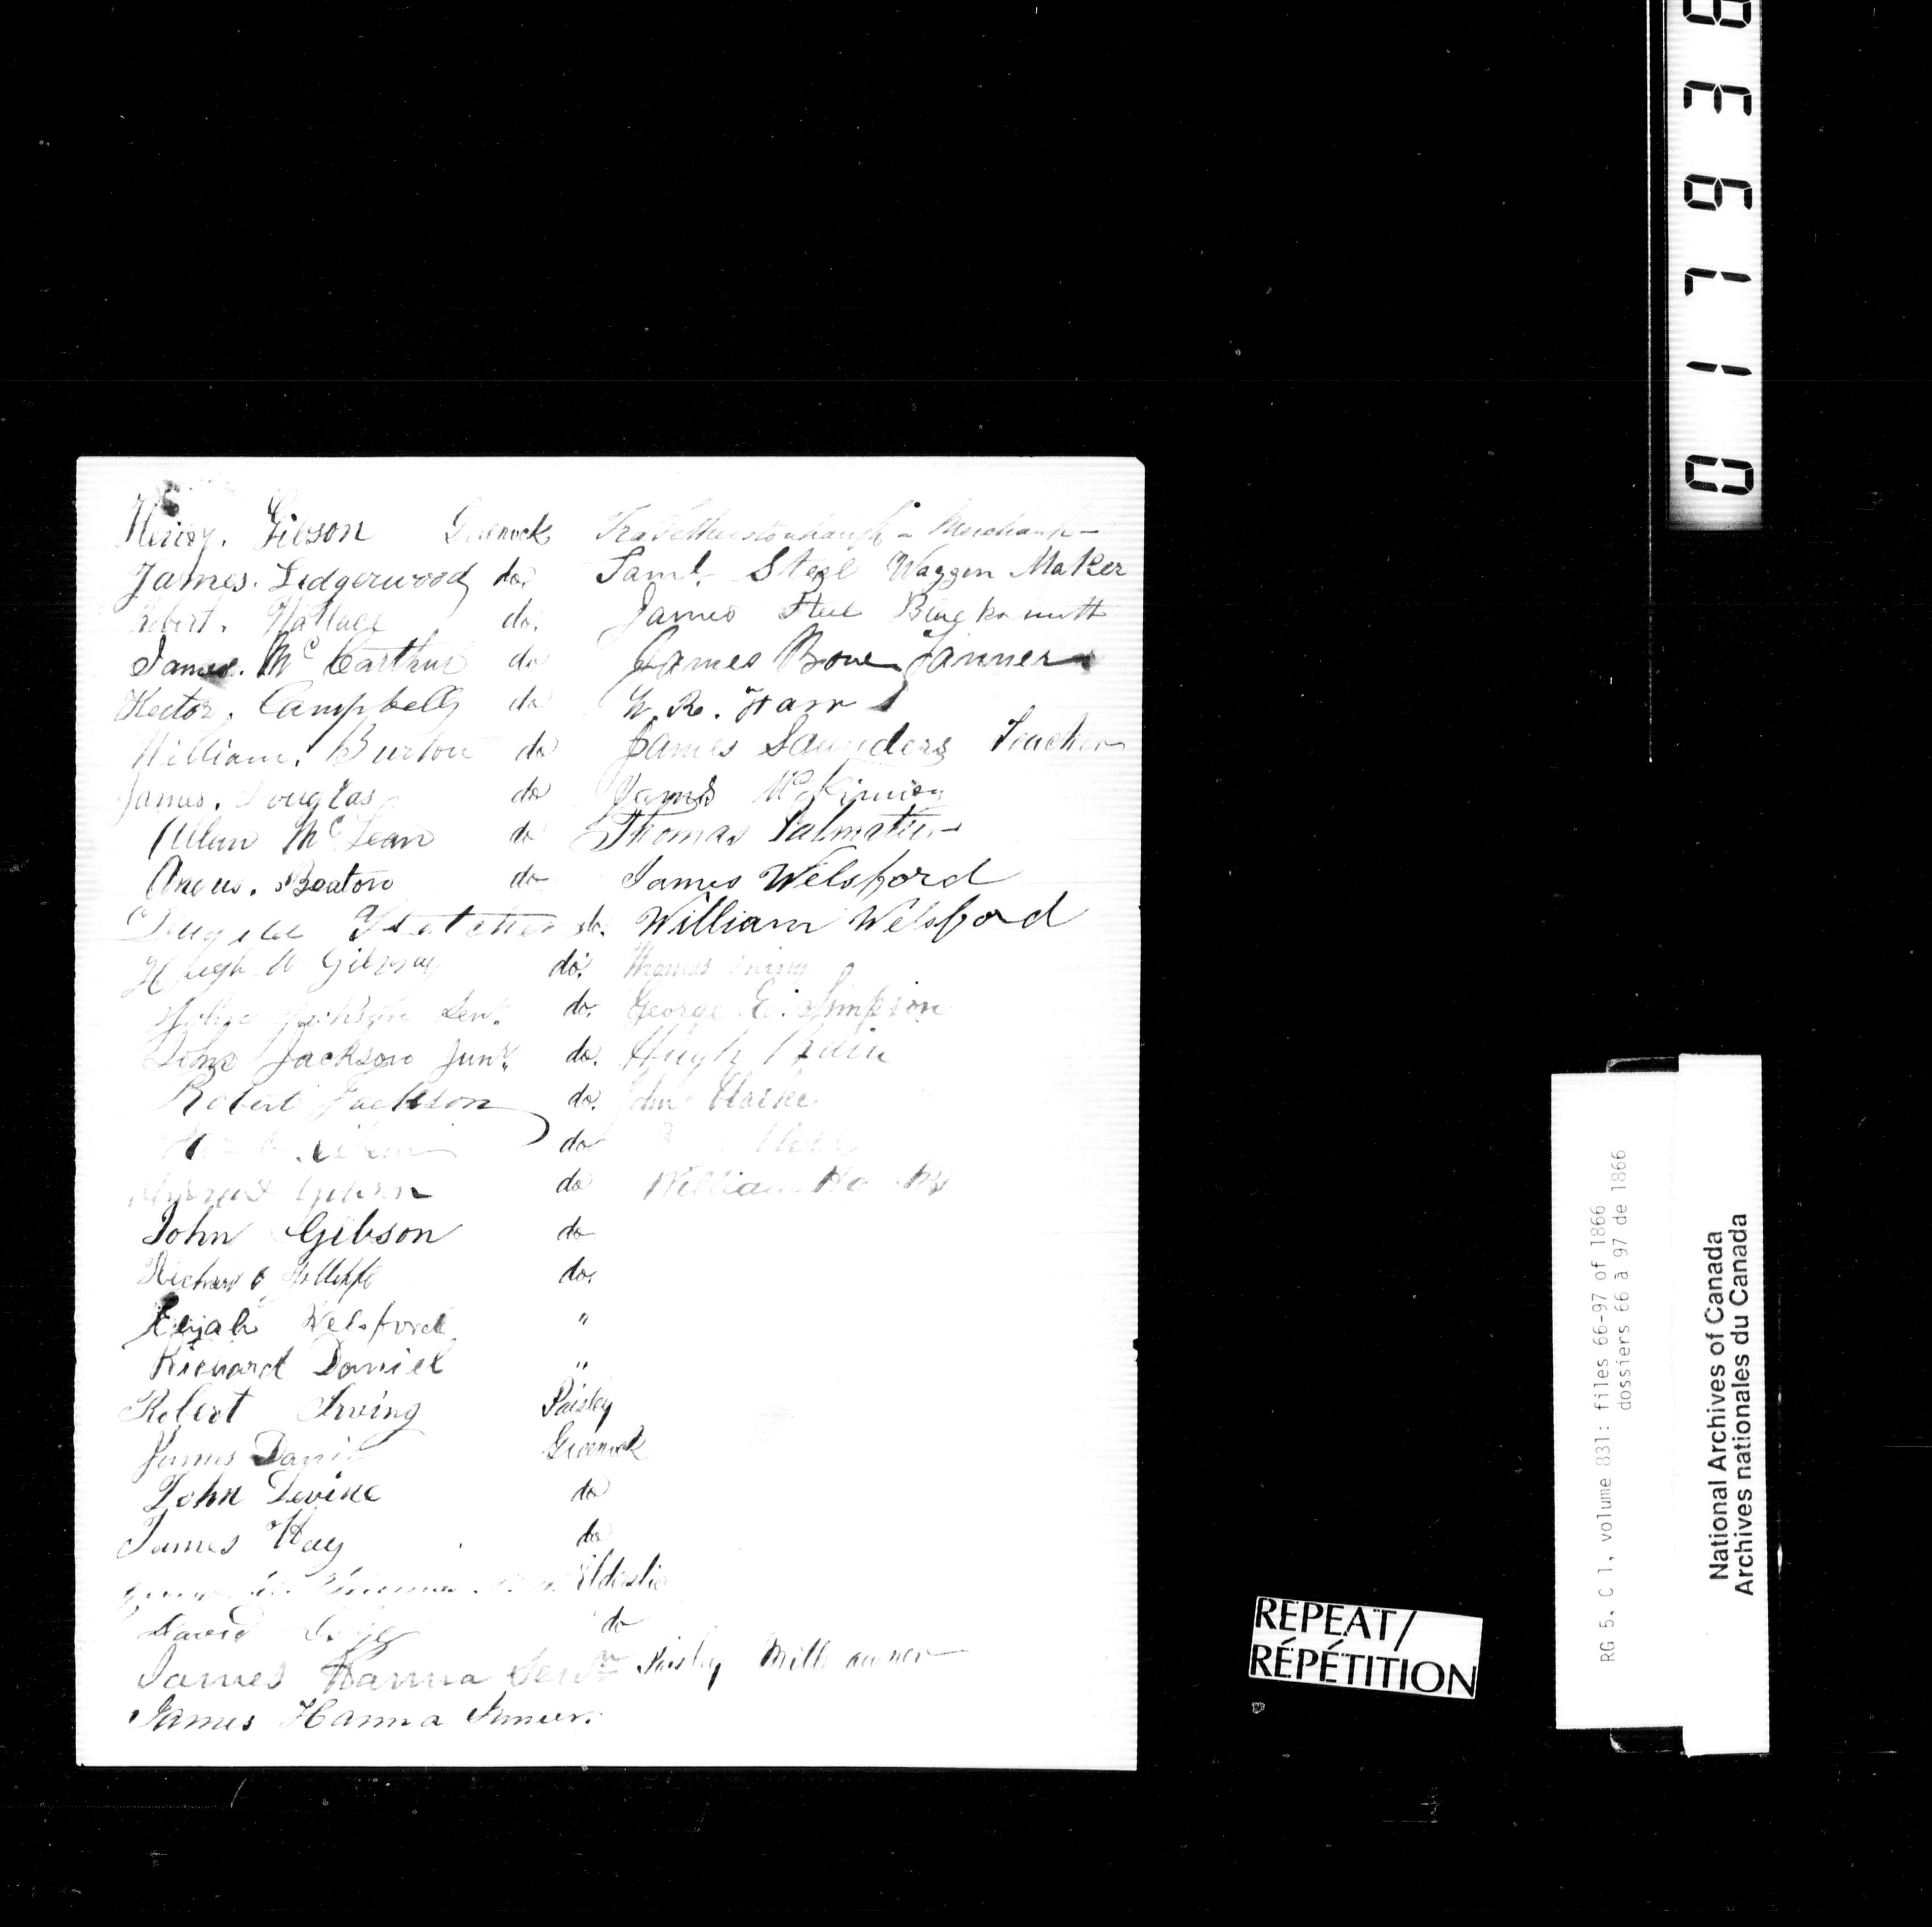 Henry. Gibson Greenock Fetherstonhaugh - Merchant -
James. Ledgerwood do. Saml. Steel Waggon Maker
Robert. Wallace do. James Steel Blacksmith
James. Mc Carthur do James Bone Tanner
Hector. Campbell do W. R. Harr
William. Burton do James Saunders Teacher
James. Douglas do James McKinnon
Allan Mc Lean do Thomas Palmatier
Angus. Beaton do James Welsford
Dugald Fletcher do. William Welsford
Hugh do. Thomas Irving
John Jackson Senr. do. George. E. Simpson
John Jackson Junr. do. Hugh
Robert Jackson do. John Clarke
do
Gibson do William
John Gibson do
Richard do.
Elijah Welsford "
Richard Daniel "
Robert Irving Paisley
James Daniel Greenock
John Devine do
James Hay do
Elderslie
David do
James Hanna Senr Paisley Mill owner
James Hanna Junior.
0 1 7 6 3 8
REPEAT/
RÉPÉTITION
RG 5, C 1, volume 831: files 66-97 of 1866
dossiers 66 à 97 de 1866
National Archives of Canada
Archives nationales du Canada